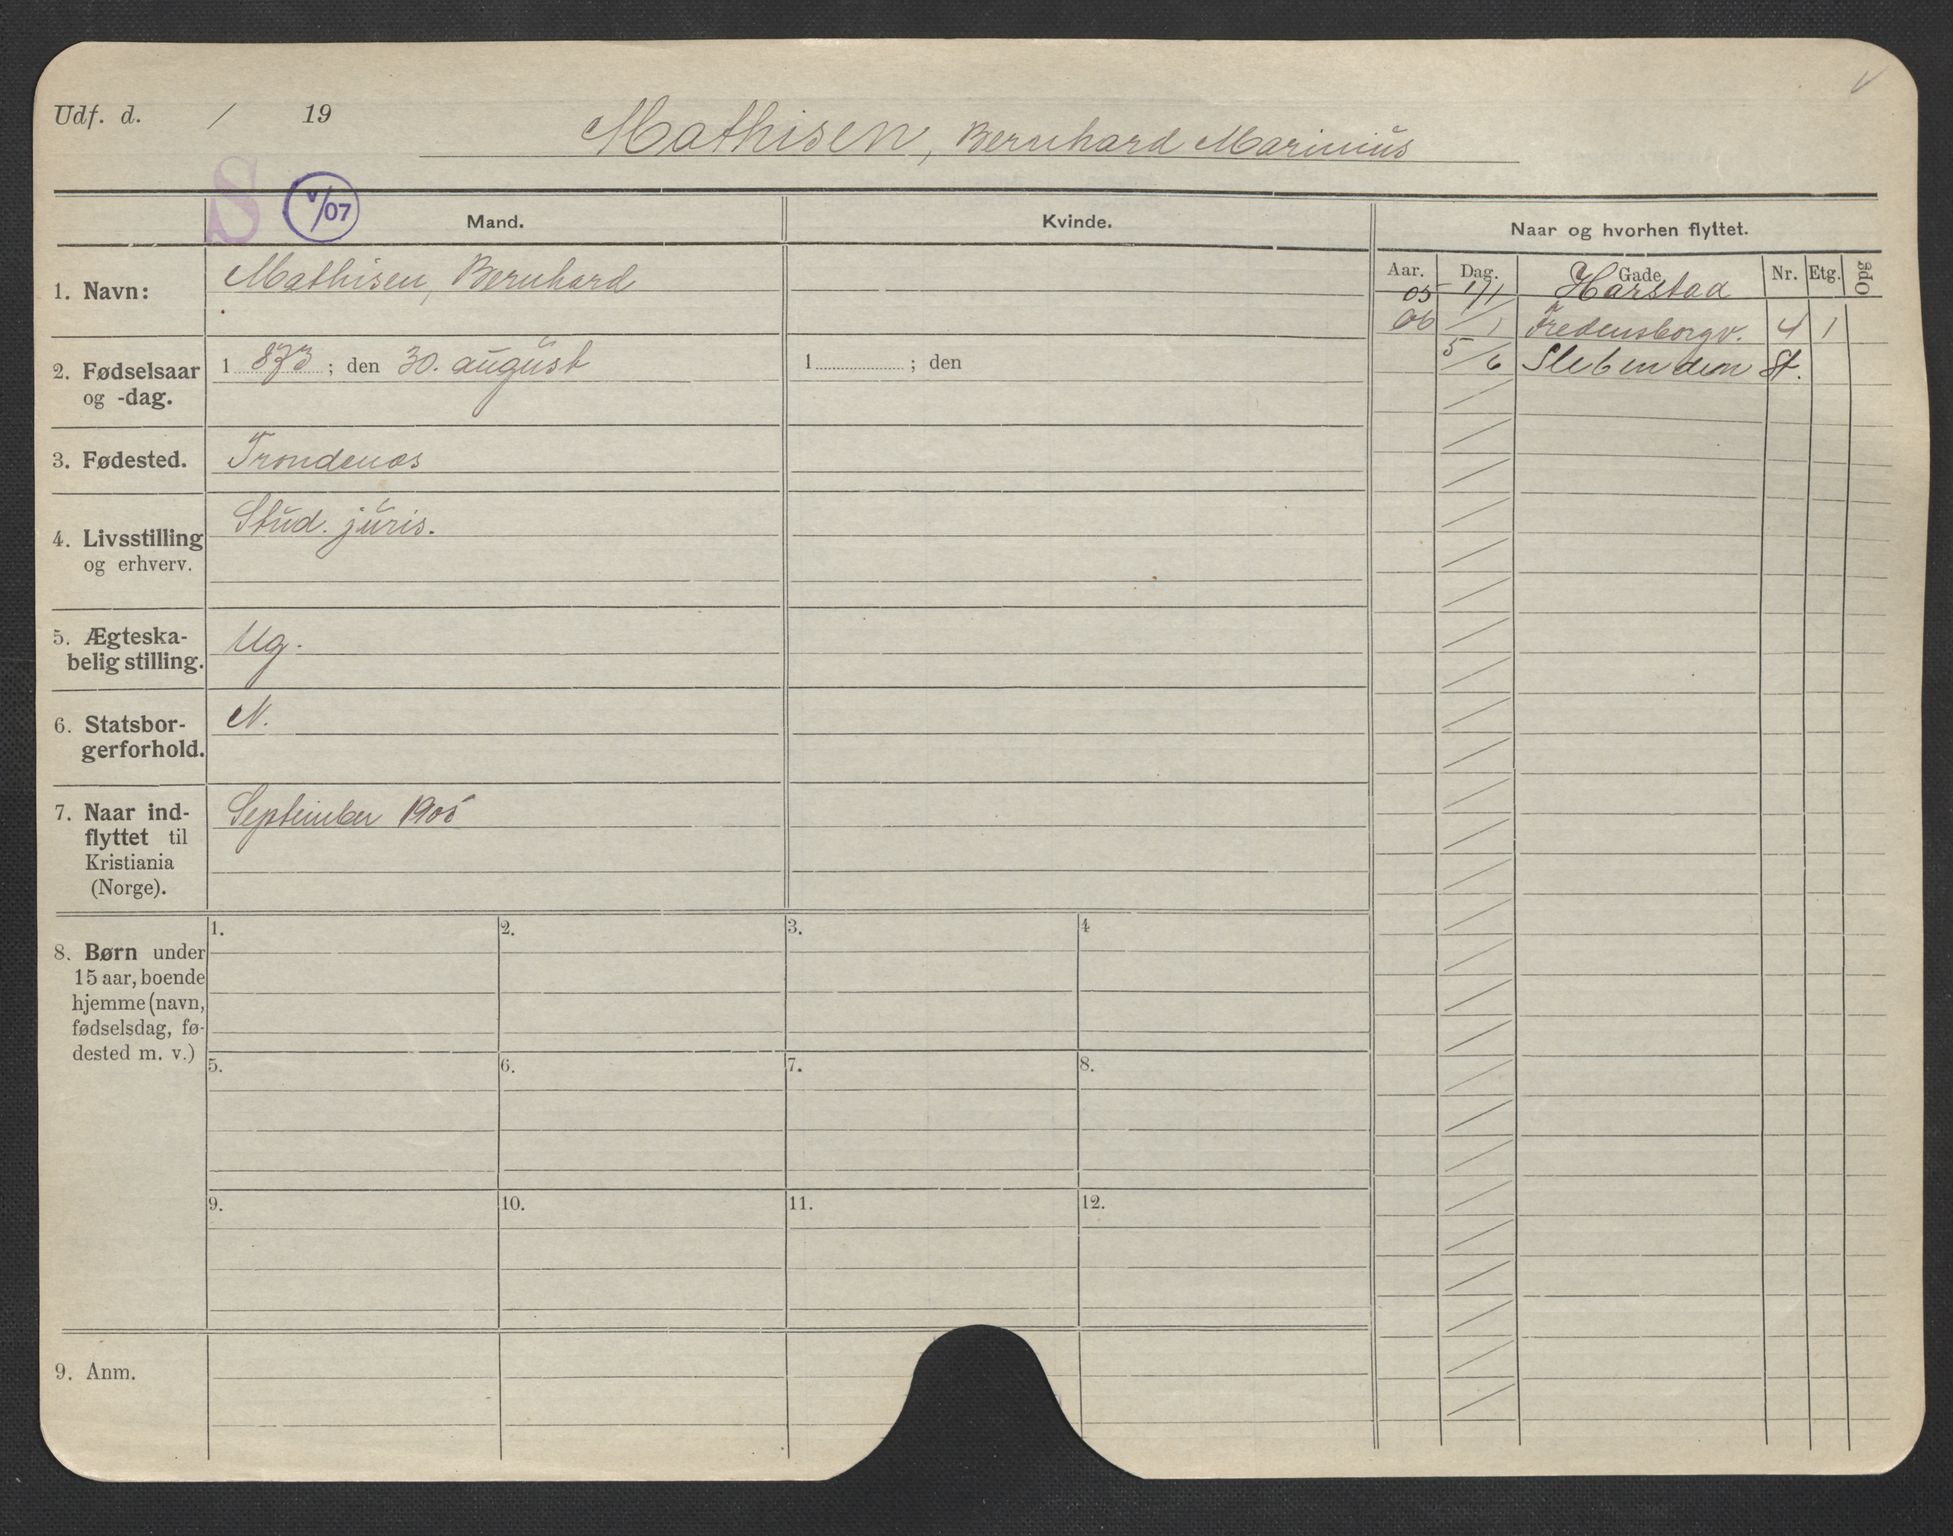 Udf. d. / 19
Mathisen, Bernhard Marinius
S V/07
Mand. Kvinde. Naar og hvorhen flyttet.
Aar. Dag. Gade Nr. Etg. Opg
05 1/1 Harstad
06 /1 Fredensborgv. 4 1
5/6 Slebenden St.
1. Navn: Mathisen, Bernhard
2. Fødselsaar 1 873 ; den 30. august 1 ; den
og -dag.
3. Fødested. Trondenæs
4. Livsstilling Stud. juris.
og erhverv.
5. Ægteska-
belig stilling. Ug.
6. Statsbor- N.
gerforhold.
7. Naar ind- September 1905
flyttet til
Kristiania
(Norge).
8. Børn under
15 aar, boende
hjemme (navn,
fødselsdag, fø-
dested m. v.)
1. 2. 3. 4
5. 6. 7. 8.
9. 10. 11. 12.
9. Anm.